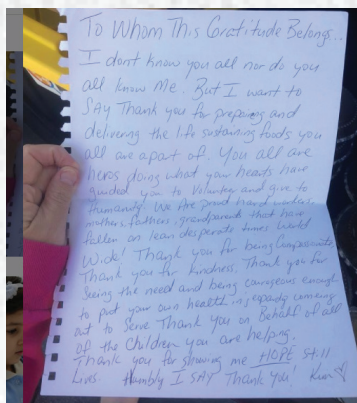 To Whom This Gratitude Belongs..
I dont know you all nor do you
all know me. But I want to
SAY Thank you for prepairing and
delivering the life sustaining foods you
all are apart of. You all are
heros doing what your hearts have
guided you to Volunteer and give to
Humanity. We are proud hard workers,
mothers, fathers, grandparents that have
fallen on lean desperate times World
Wide! Thank you for being Compassionate,
Thank you for Kindness. Thank you for
Seeing the need and being courageous enough
to put your own health in jepardy coming
out to Serve Thank you on Behalf of all
of the Children you are helping.
Thank you for showing me HOPE Still
Lives. Humbly I SAY Thank You! Kim